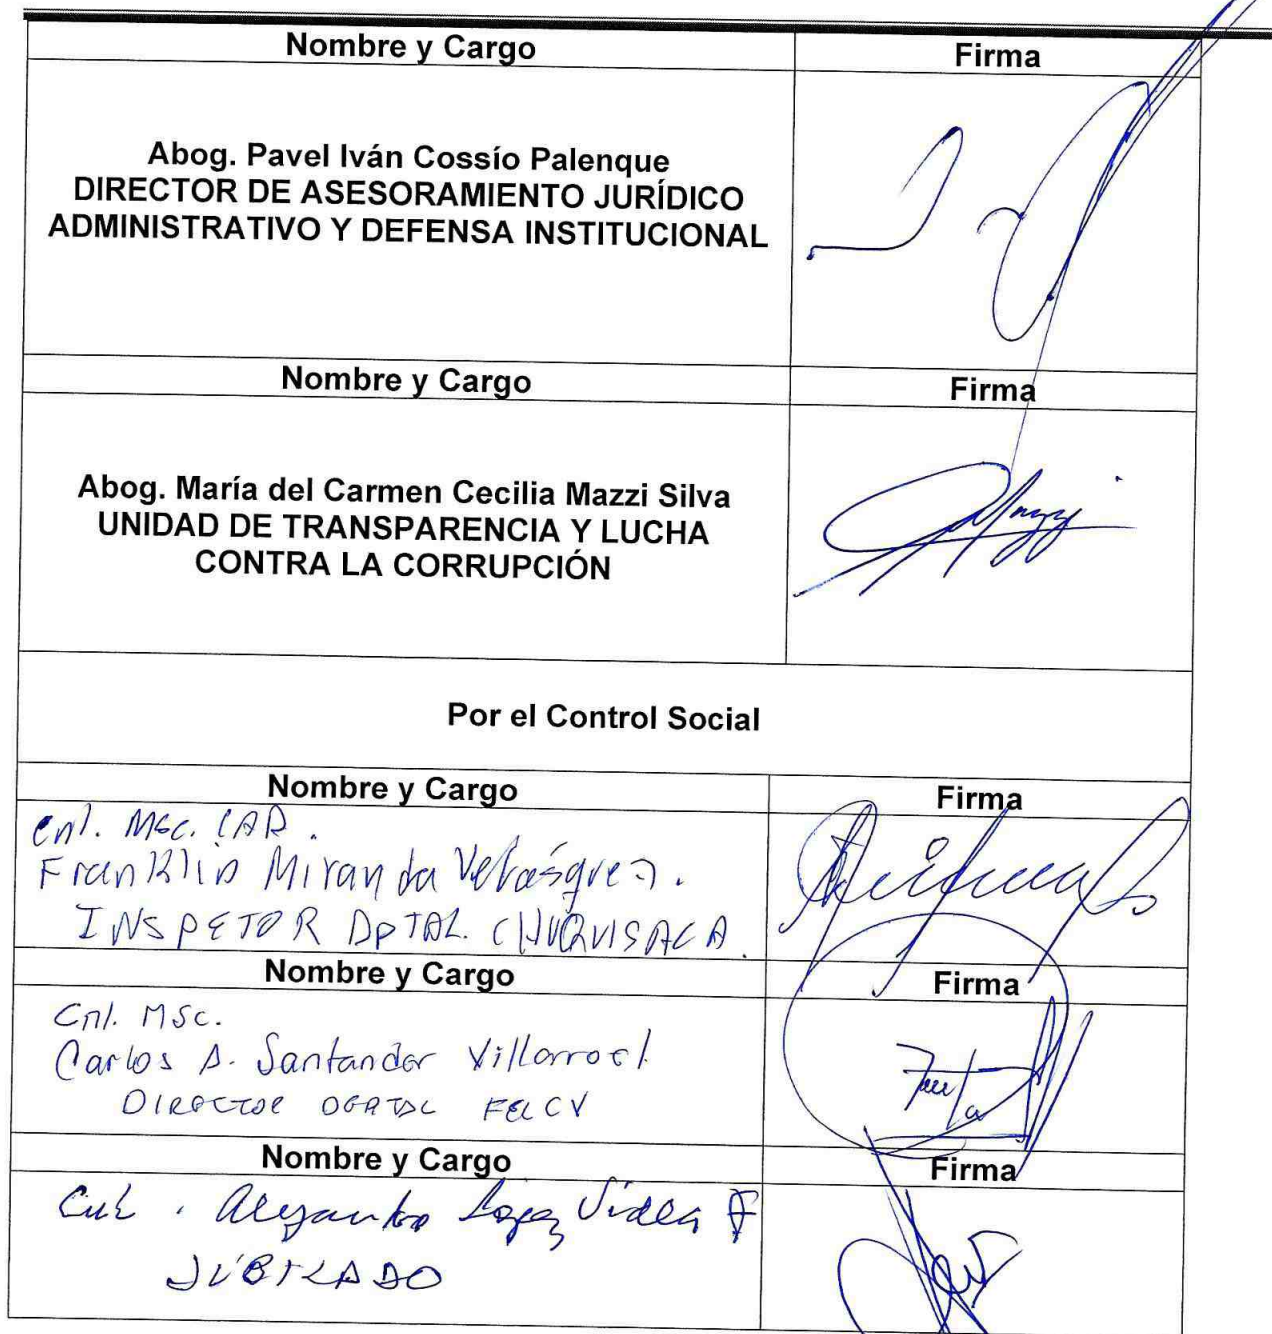 Nombre y Cargo Firma
Abog. Pavel Iván Cossío Palenque
DIRECTOR DE ASESORAMIENTO JURÍDICO
ADMINISTRATIVO Y DEFENSA INSTITUCIONAL
Nombre y Cargo Firma
Abog. María del Carmen Cecilia Mazzi Silva
UNIDAD DE TRANSPARENCIA Y LUCHA
CONTRA LA CORRUPCIÓN
Mazzi
Por el Control Social
Nombre y Cargo Firma
Cnl. MSc. CAD.
Franklin Miranda Velásquez.
INSPETOR DPTAL. CHUQUISACA.
Nombre y Cargo Firma
Cnl. MSc.
Carlos A. Santander Villarroel
DIRECTOR FELCV
Nombre y Cargo Firma
Alejandro Lopez Videla F
JUBILADO